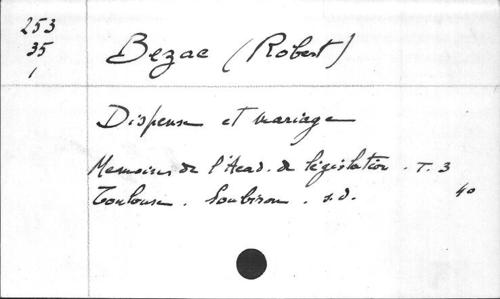 253
35
1
Bezac (Robert)
Dispense et mariage
Memoires de l'Acad. de législation. T. 3
Toulouse. Soubiron. s.d. 40